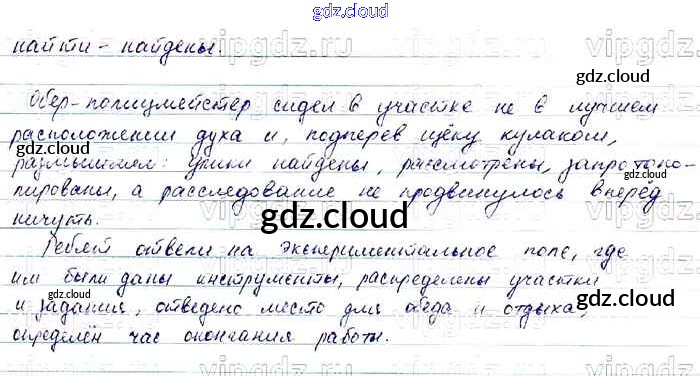 gdz.cloud
найти - найдены.
Обер-полицмейстер сидел в участке не в лучшем
расположении духа и, подперев щёку кулаком,
размышлял: улики найдены, рассмотрены, запротоко-
лированы, а расследование не продвинулось вперёд
ничуть.
Ребят отвели на экспериментальное поле, где
им были даны инструменты, распределены участки
и задания, отведено место для обеда и отдыха,
определён час окончания работы.
gdz.cloud
gdz.cloud
gdz.cloud
gdz.cloud
gdz.cloud
gdz.cloud